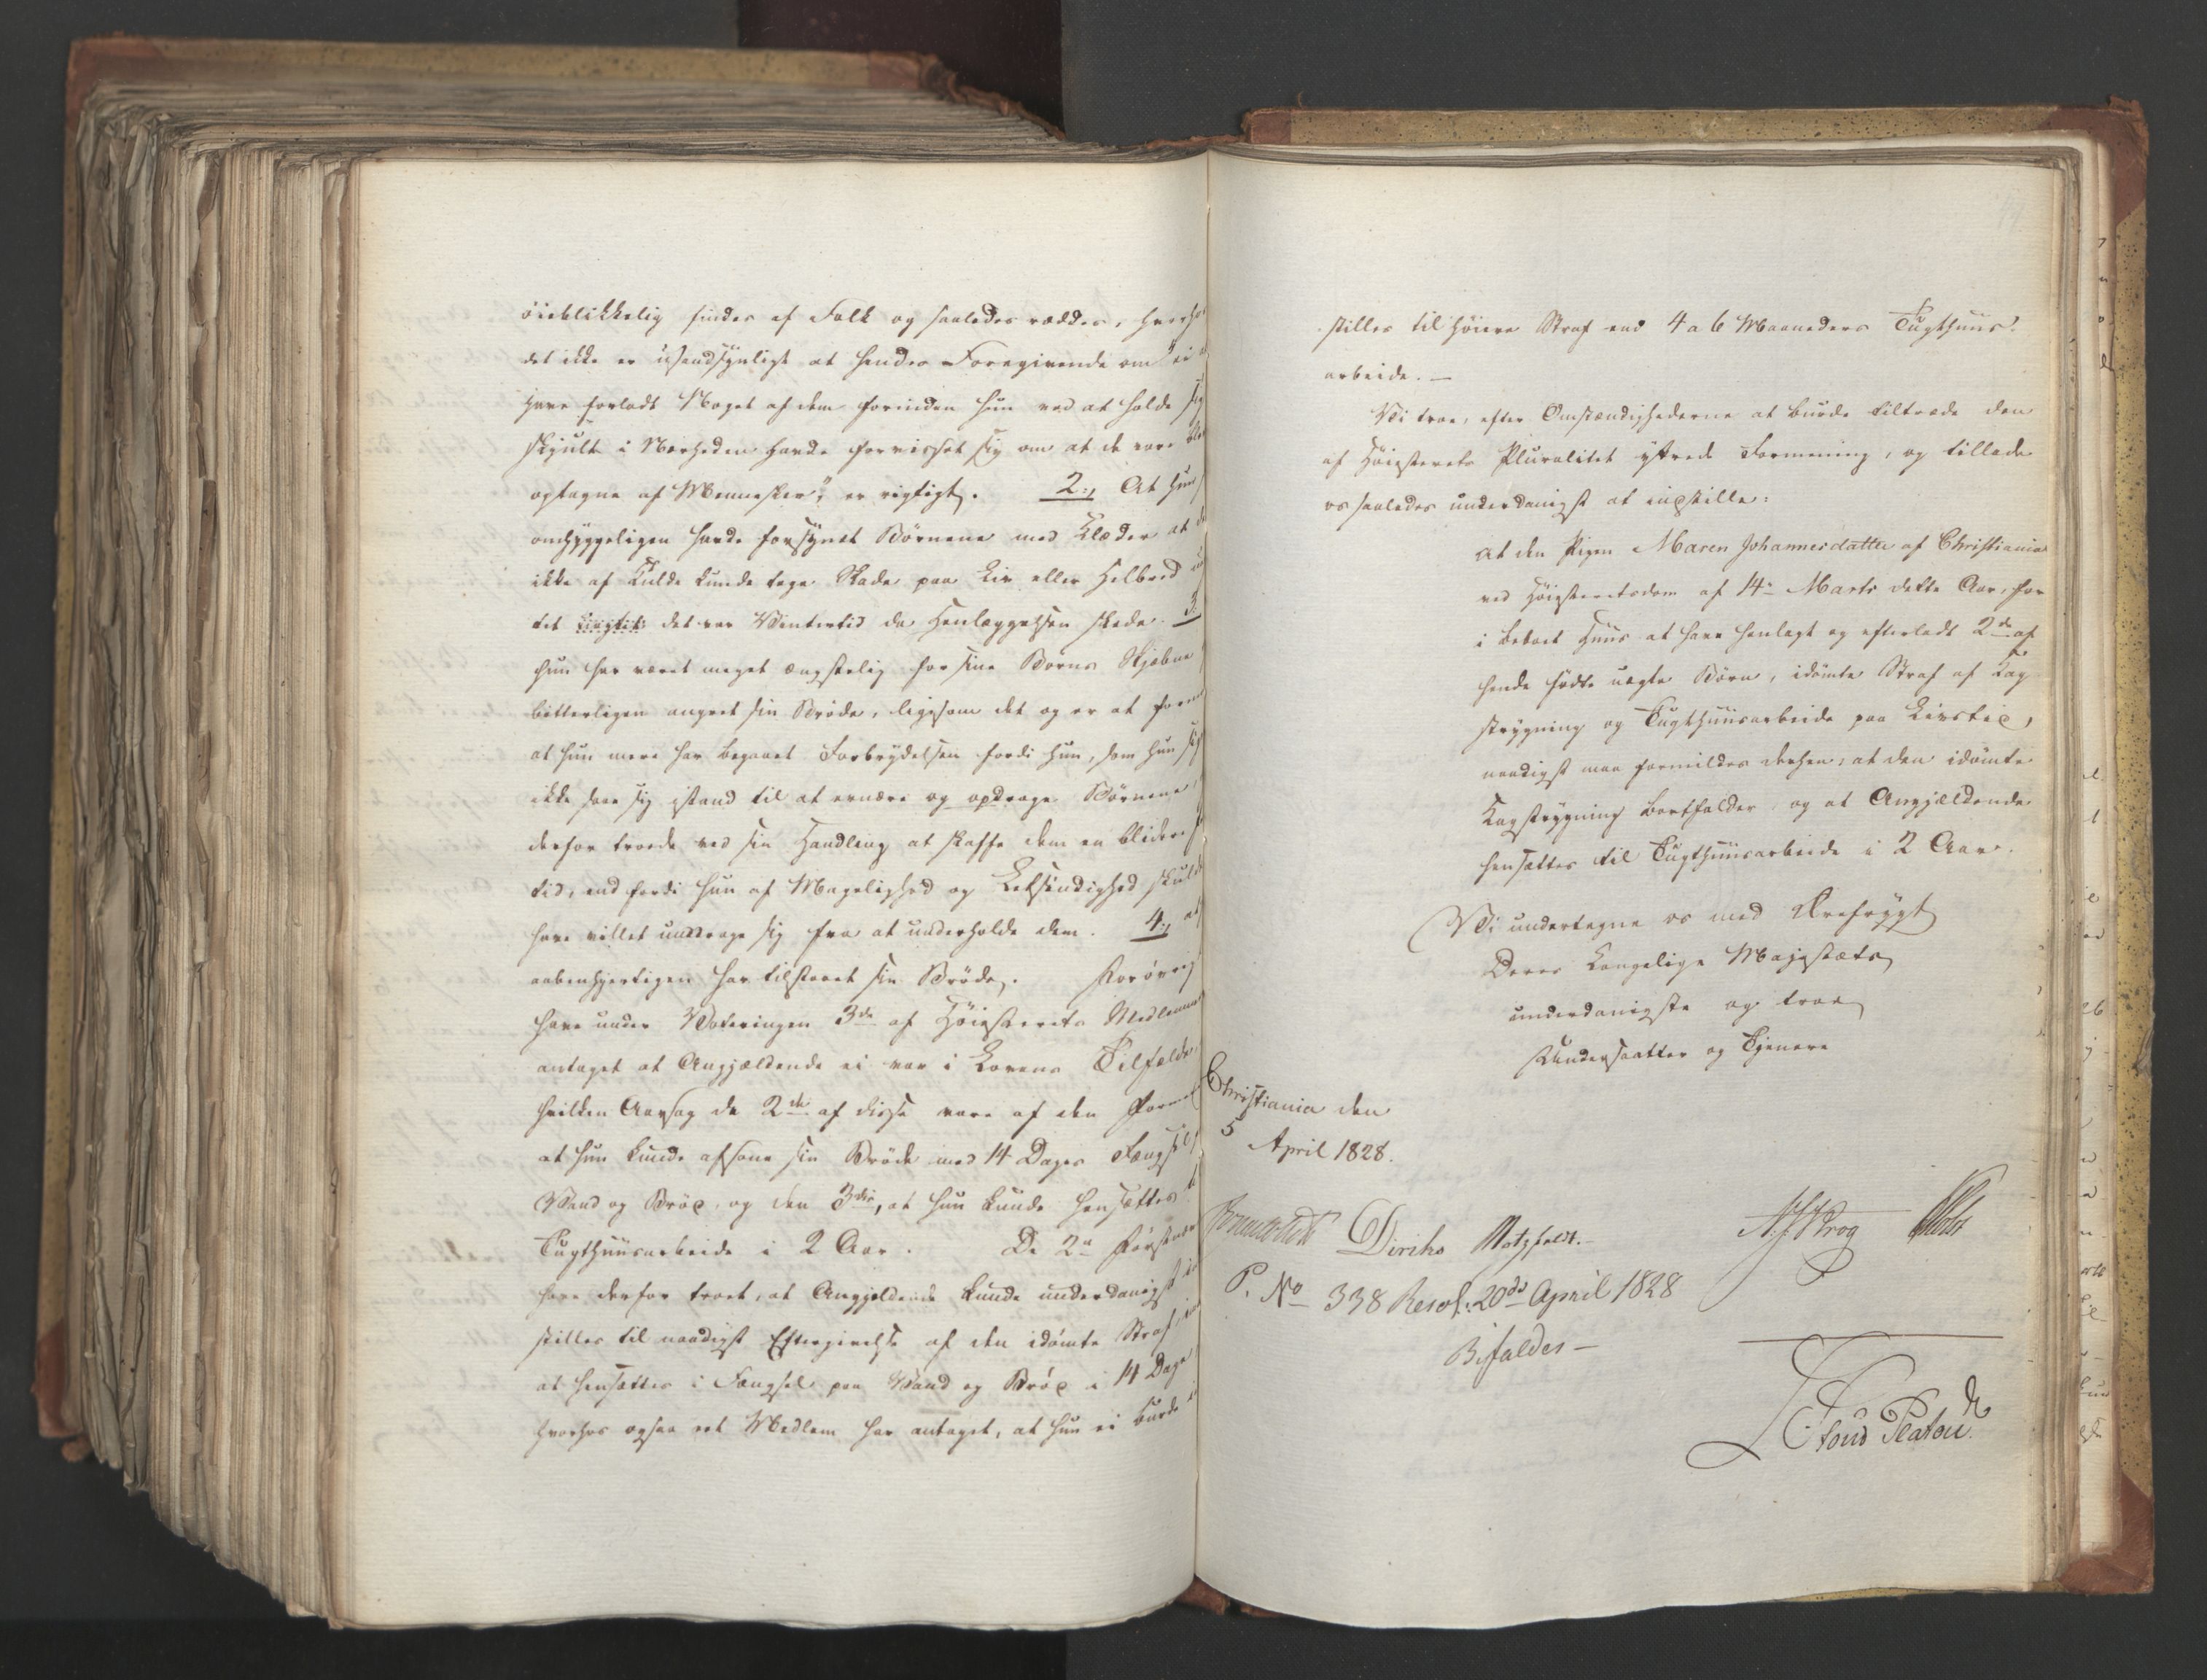 öieblikkelig findes af Folk og saaledes reddes, hvorhos
det ikke er usandsynligt at hendes Foregivende om "ei a
have forladt Noget af dem forinden hun ved at holde sig
skjult i Nærheden havde forvisset sig om at de vare ble
optagne af Mennesker," er rigtigt. 2:, At hun
omhyggeligen havde forsynet Børnene med Klæder at de
ikke af Kulde kunde tage Skade paa Liv eller Helbred u
det var Vintertid da Henlæggelsen skede. 3
hun har været meget ængstelig for sine Børns Skjæbne
bitterligen angret sin Bröde, ligesom det og er at form
at hun mere har begaaet Forbrydelsen fordi hun, som hun
ikke saae sig istand til at ernære og opdrage Børnene,
derfor troede ved sin Handling at skaffe dem en blidere
tid, end fordi hun af Magelighed og Letsindighed skulde
have villet unddrage sig fra at underholde dem. 4:, at
aabenhjertigen har tilstaaet sin Bröde. Forøvrigt
have under Voteringen 3de af Höiesterets Medlemmer
antaget at Angjældende ei var i Lovens Tilfælde,
hvilken Aarsag de 2de af disse vare af den Formening
at hun kunde afsone sin Bröde med 14 Dages Fængsel
Vand og Bröd, og den 3die, at hun kunde hensættes t
Tugthuusarbeide i 2 Aar. De 2de Förstnævnte
have derfor troet, at Angjeldende kunde underdanigst in
stilles til naadigst Eftergivelse af den idömte Straf,
at hensættes i Fængsel paa Vand og Bröd i 14 Dage
hvorhos ogsaa eet Medlem har antaget, at hun ei burde i
stilles til höiere Straf end 4 a 6 Maaneders Tugthuus-
arbeide. —
Vi troe, efter Omstændighederne at burde tiltræde den
af Höiesterets Pluralitet yttrede Formening, og tillade
os saaledes underdanigst at indstille:
At den Pigen Maren Johannesdatter af Christiania
ved Höiesteretsdom af 14de Marts dette Aar, for
i beboet Huus at have henlagt og efterladt 2de af
hende födte uægte Börn, idömte Straf af Kag
strygning og Tugthuusarbeide paa Livstid,
naadigst maa formildes derhen, at den idömte
Kagstrygning bortfalder og at Angjældende
hensættes til Tugthuusarbeide i 2 Aar.
Vi undertegne os med Ærefrygt
Deres Kongelige Majestæts
underdanigste og troe
Undersaatter og Tjenere
Christiania den
5 April 1828.
Diriks Motzfeldt. — Krog Holst
P. No 338 Resol: 20de April 1828
Bifaldes —
Platou